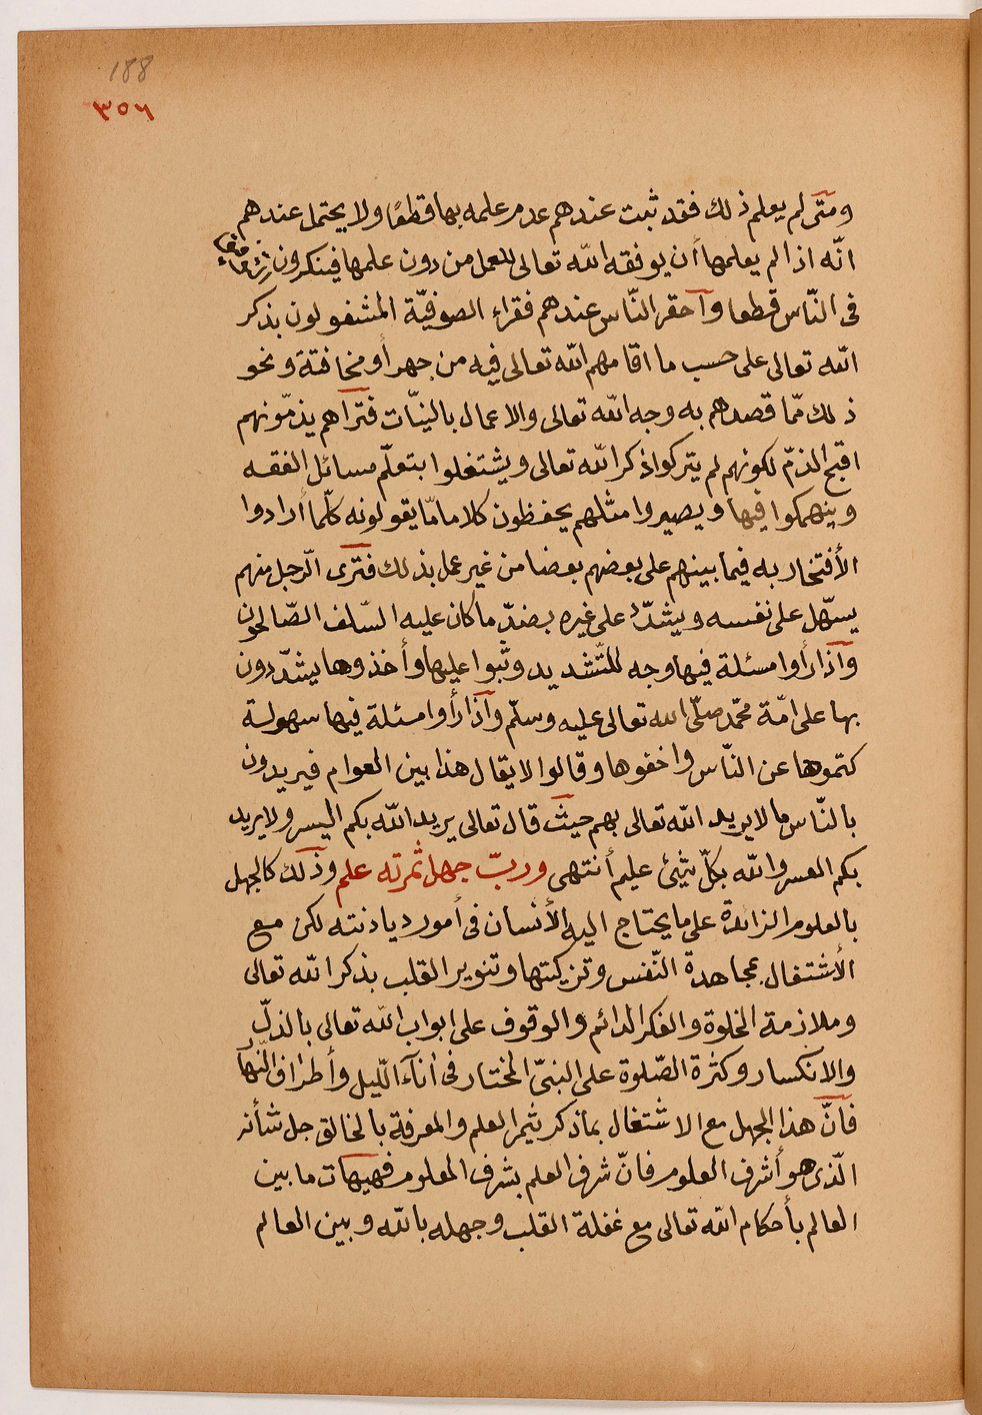 188
٣٥٦
ومتى لم يعلم ذلك فقد ثبت عندهم عدم علمه بها قطعًا ولا يحتمل عندهم
انّه اذا لم يعلمها أن يوفقه الله تعالى للعمل من دون علمها فينكرون
فى النّاس قطعا وآحقر النّاس عندهم فقراء الصوفيّة المشغولون بذكر
الله تعالى على حسب ما اقامهم الله تعالى فيه من جهر أو مخافتة ونحو
ذلك ممّا قصدهم به وجه الله تعالى والاعمال بالنيّات فتراهم يذمّونهم
اقبح الذمّ لكونهم لم يتركوا ذكر الله تعالى ويشتغلوا بتعلّم مسائل الفقه
وينهمكوا فيها ويصيروا مثلهم يحفظون كلاما مّا يقولونه كلّما أرادوا
الأفتخار به فيما بينهم على بعضهم بعضا من غير عمل بذلك فترى الرّجل منهم
يسهّل على نفسه ويشدّد على غيره بضدّ ما كان عليه السّلف الصّالحون
وآذا رأوا مسئلة فيها وجه للتّشديد وثبوا عليها وأخذوها يشدّدون
بها على امّة محمّد صلّى الله تعالى عليه وسلّم وآذا رأوا مسئلة فيها سهولة
كتموها عن النّاس واخفوها وقالوا لا يقال هذا بين العوام فيريدون
بالنّاس ما لا يريد الله تعالى بهم حيث قال تعالى يريد الله بكم اليسر ولا يريد
بكم العسر والله بكلّ شئ عليم أنتهى وربّ جهل ثمرته علم وذلك كالجهل
بالعلوم الزائدة على ما يحتاج اليه الأنسان فى أمور ديانته لكن مع
الأشتغال بمجاهدة النّفس وتزكيتها وتنوير القلب بذكر الله تعالى
وملازمة الخلوة والفكر الدائم والوقوف على ابواب الله تعالى بالذلّ
والانكسار وكثرة الصّلوة على النبىّ المختار فى أنآء اللّيل وأطراف النّهآ
فآنّ هذا الجهل مع الاشتغال بما ذكر يثمر العلم والمعرفة بالخالق جل شأنه
الّذى هو أشرف العلوم فانّ شرف العلم بشرف المعلوم فهيهات ما بين
العالم بأحكام الله تعالى مع غفلة القلب وجهله بالله وبين العالم